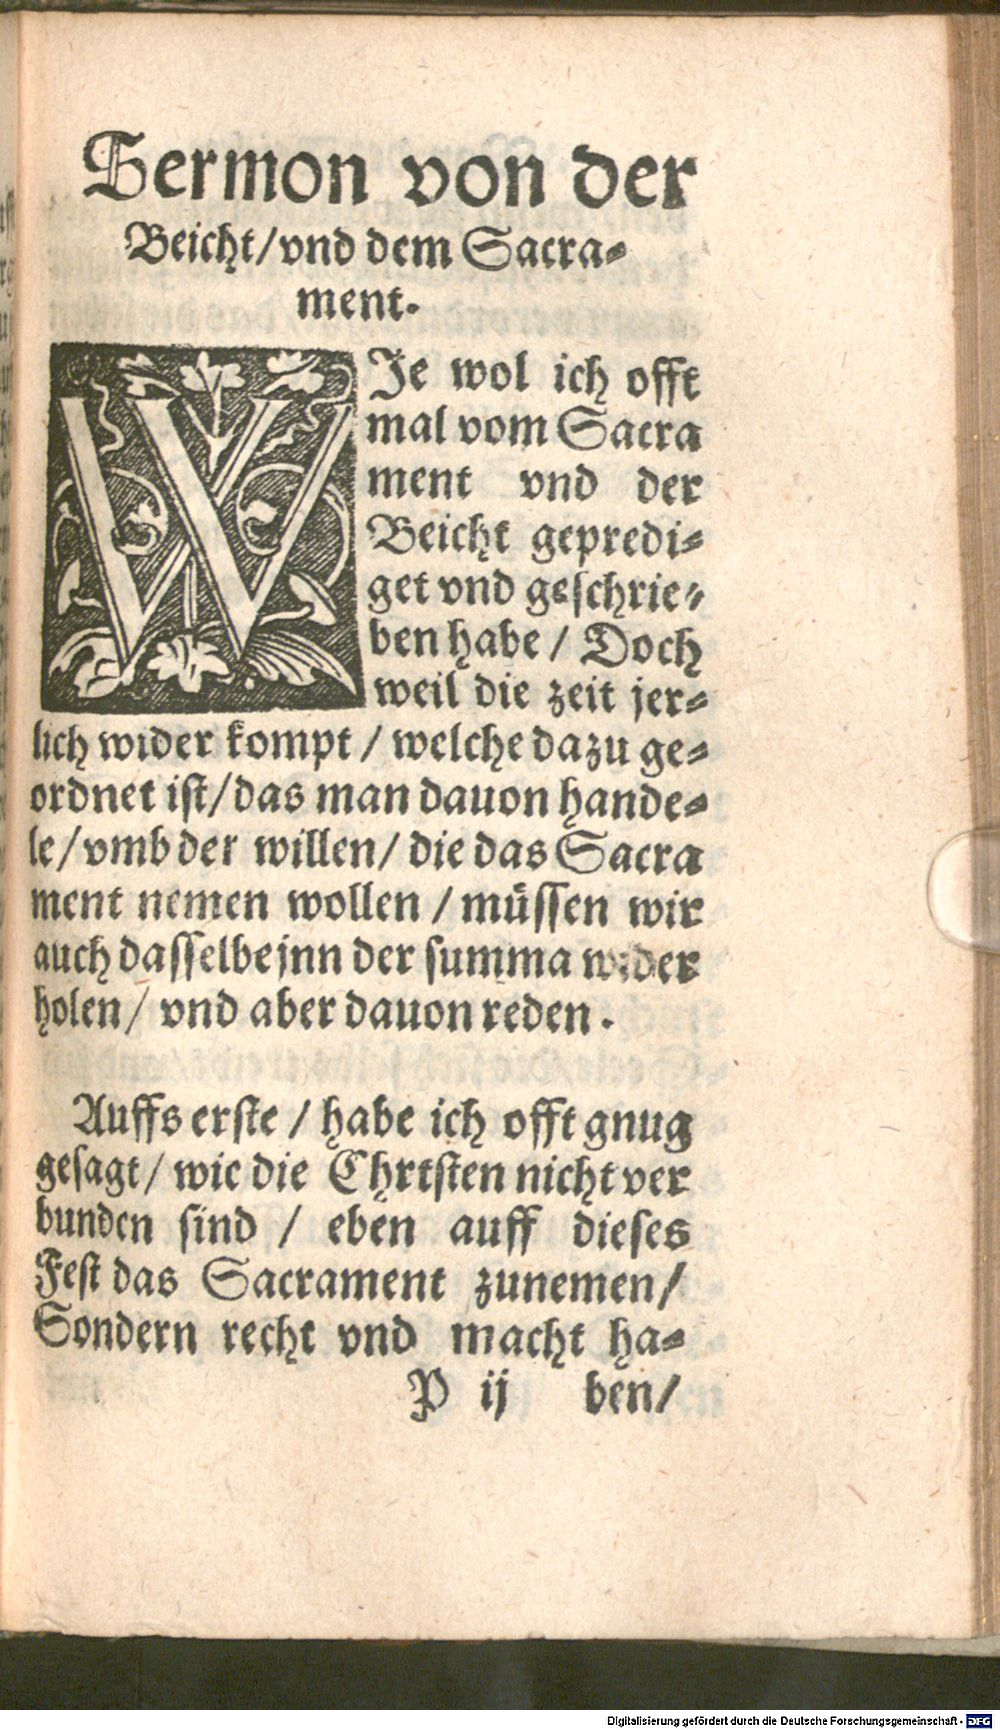 Sermon von der
Beicht/vnd dem Sacra⸗
ment.
WIe wol ich offt
mal vom Sacra
ment vnd der
Beicht gepredi⸗
get vnd geschrie⸗
ben habe / Doch
weil die zeit jer⸗
lich wider kompt / welche dazu ge⸗
ordnet ist/das man dauon hande⸗
le/vmb der willen/ die das Sacra
ment nemen wollen / müssen wir
auch dasselbe jnn der summa wider
holen/ vnd aber dauon reden.
Auffs erste / habe ich offt gnug
gesagt/ wie die Chrtsten nicht ver
bunden sind / eben auff dieses
Fest das Sacrament zunemen/
Sondern recht vnd macht ha⸗
P ij ben/
Digitalisierung gefördert durch die Deutsche Forschungsgemeinschaft - DFG